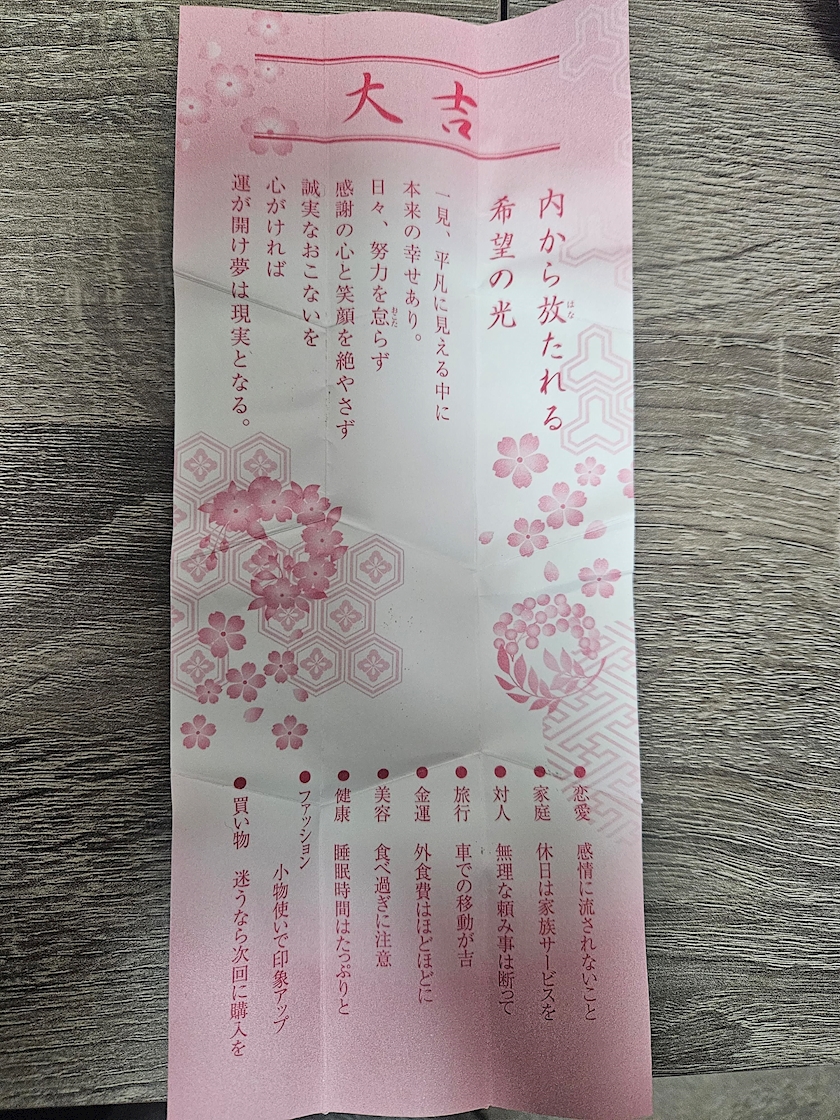 大吉
内から放たれる
希望の光
一見、平凡に見える中に
本来の幸せあり。
日々、努力を怠らず
感謝の心と笑顔を絶やさず
誠実なおこないを
心がければ
運が開け夢は現実となる。
●恋愛 感情に流されないこと
●家庭 休日は家族サービスを
●対人 無理な頼み事は断って
●旅行 車での移動が吉
●金運 外食費はほどほどに
●美容 食べ過ぎに注意
●健康 睡眠時間はたっぷりと
●ファッション
小物使いで印象アップ
●買い物 迷うなら次回に購入を